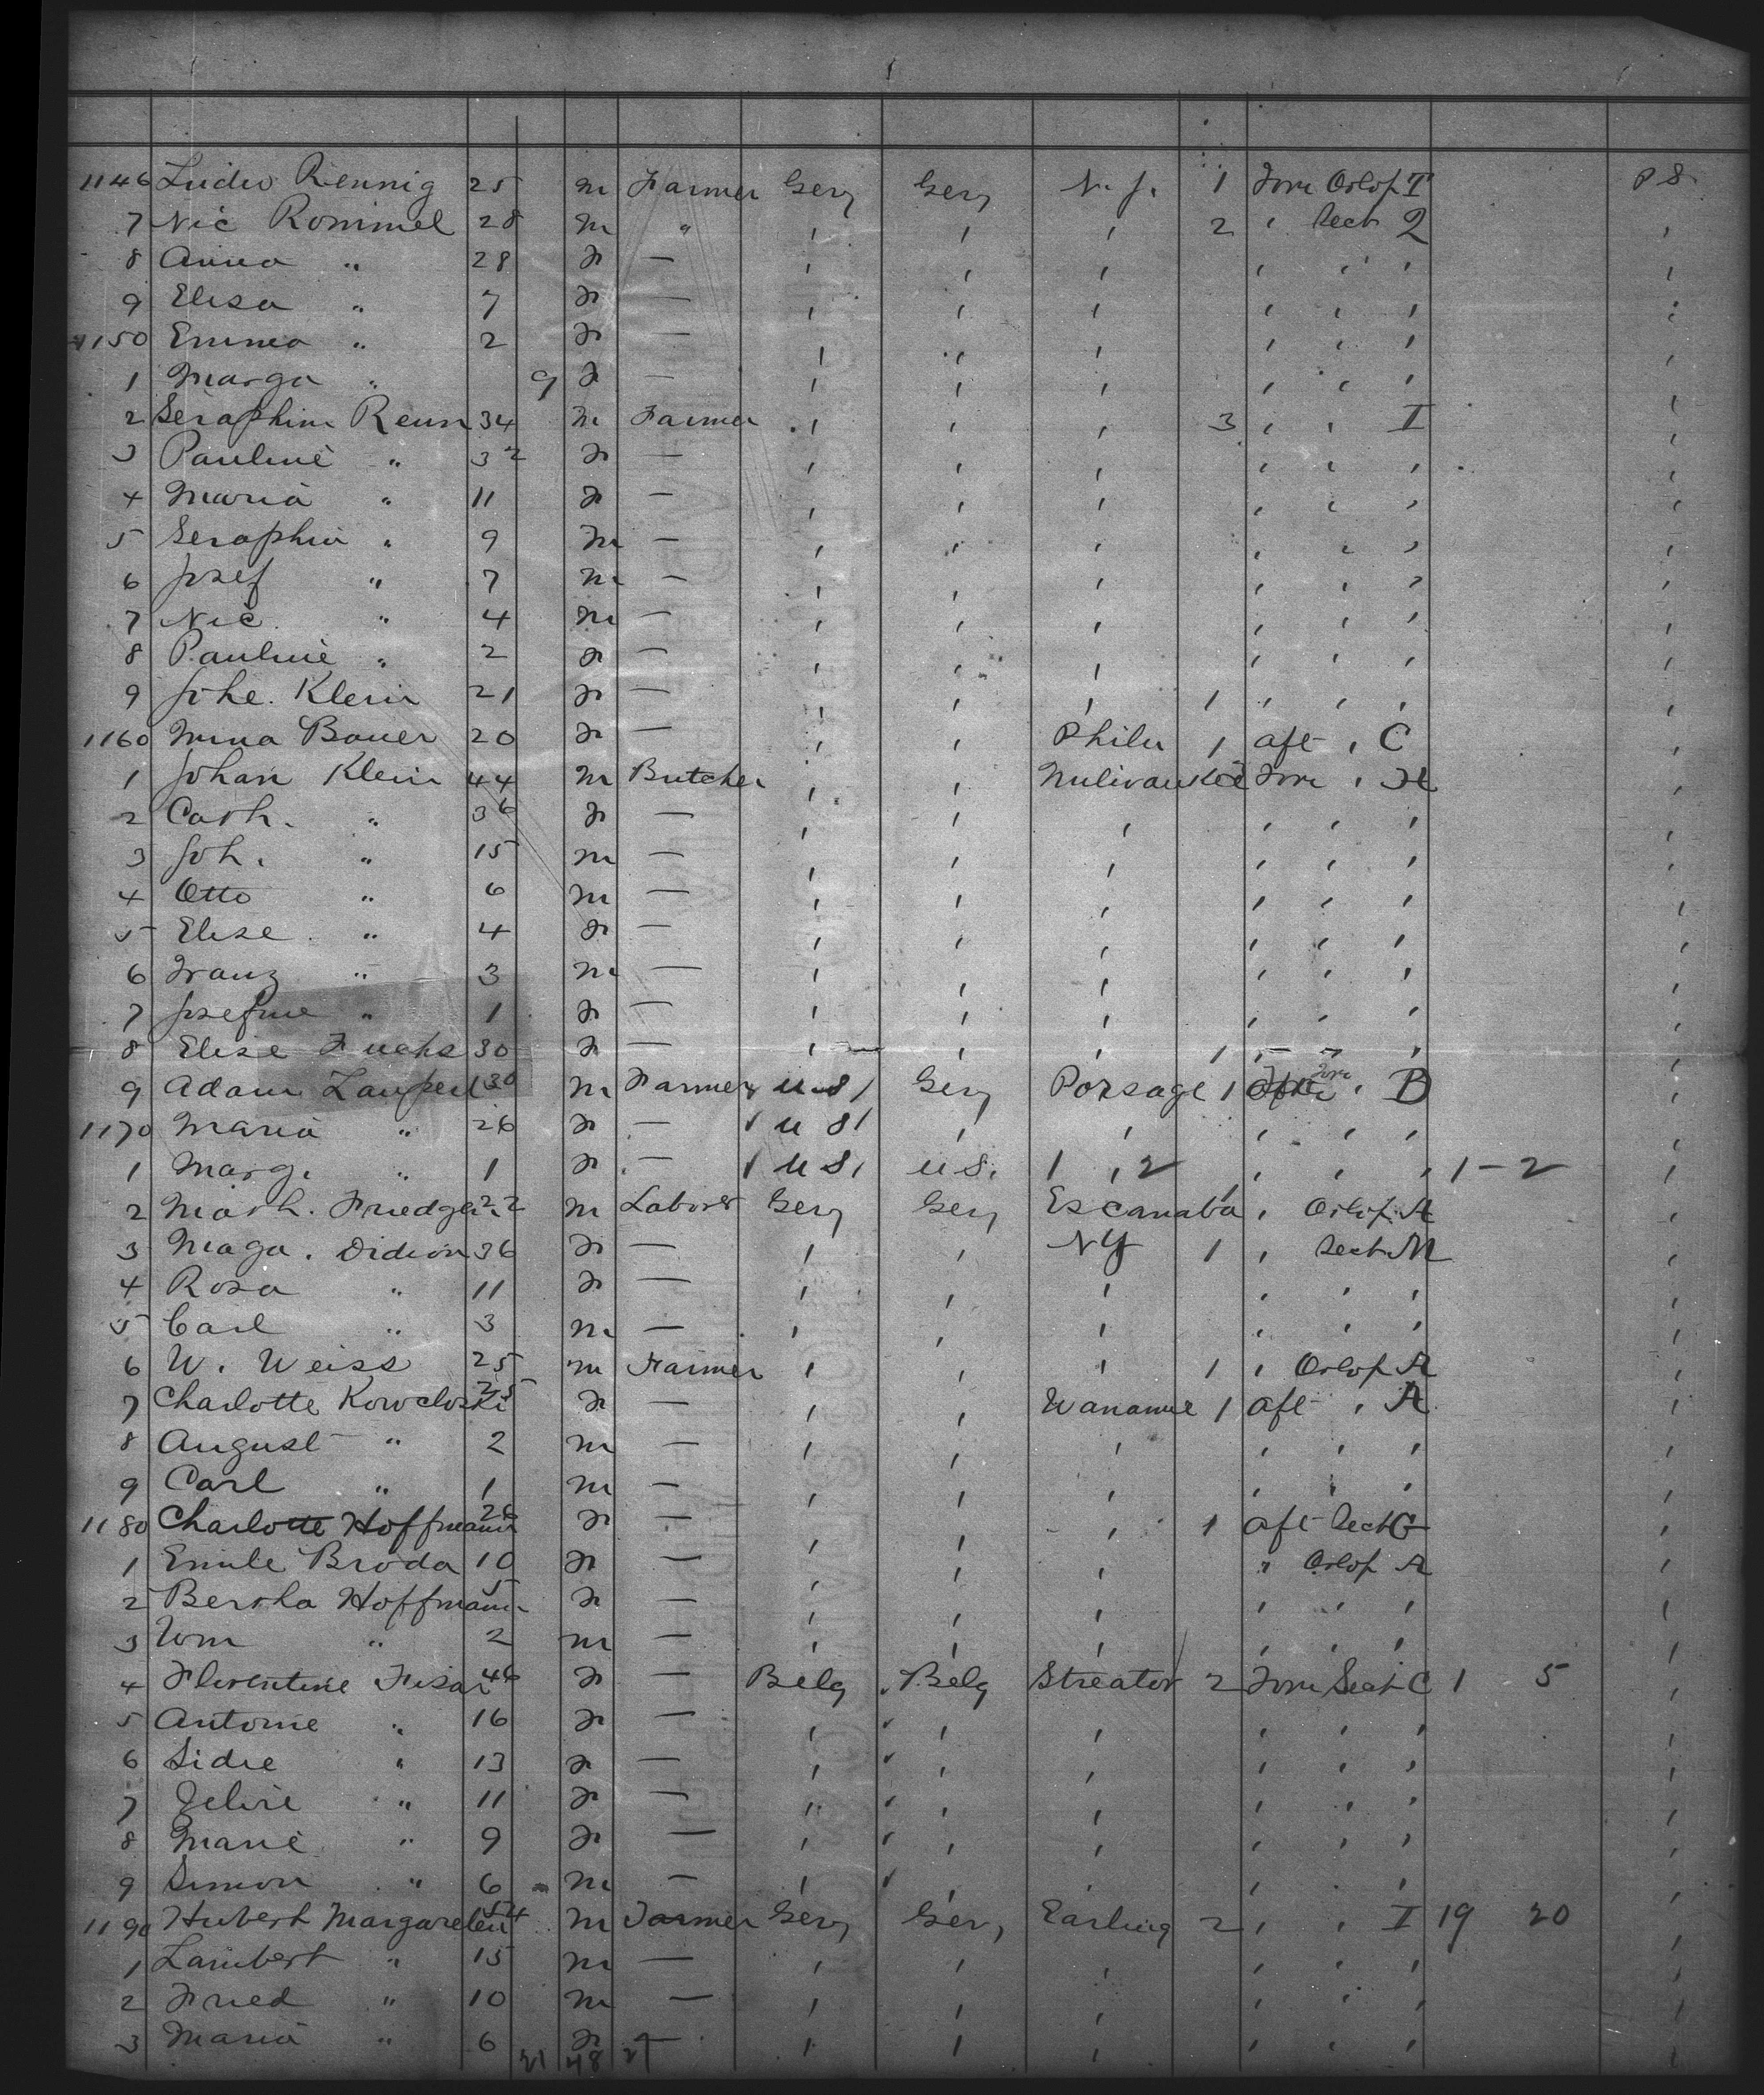 1146 Ludw Rennig 25 m Farmer Gery Gery N. J. 1 Forw Orlop T P S
7 Nic Rommel 28 m " , , , 2 , Sect 2 ,
8 Anna " 28 f — , , , , , , ,
9 Elisa " 7 f — , , , , , , ,
1150 Emma " 2 f — , , , , , , ,
1 Marga " 9 f — , , , , , , ,
2 Seraphim Renn 34 m Farmer , , , 3 , , I ,
3 Pauline " 32 f — , , , , , , ,
4 Maria " 11 f — , , , , , , ,
5 Seraphin " 9 m — , , , , , , ,
6 Josef " 7 m — , , , , , , ,
7 Nic " 4 m — , , , , , , ,
8 Pauline " 2 f — , , , , , , ,
9 Johe. Klein 21 f — , , , 1 , , , ,
1160 Mina Bauer 20 f — , , Phila 1 aft , C ,
1 Johan Klein 44 m Butcher , , Milwaukee Forw , H ,
2 Cath. " 36 f — , , , , , , ,
3 Joh. " 15 m — , , , , , , ,
4 Otto " 6 m — , , , , , , ,
5 Elise " 4 f — , , , , , , ,
6 Franz " 3 m — , , , , , , ,
7 Josefine " 1 f — , , , , , , ,
8 Elise Fuchs 30 f — , , , 1 , , , ,
9 Adam Laupert 30 m Farmer U S Gery Portage 1 Forw , B ,
1170 Maria " 26 f — U S , , , , , ,
1 Marg. " 1 f — U S, U S. 1 , 2 , , , 1 - 2 ,
2 Math. Friedgen 22 m Laborer Gery Gery Escanaba , Orlop A ,
3 Maga. Didion 36 f — , , N Y 1 , Sect M ,
4 Rosa " 11 f — , , , , , , ,
5 Carl " 3 m — , , , , , , ,
6 W. Weiss 25 m Farmer , , , 1 , Orlop A ,
7 Charlotte Kowcloski 25 f — , , Wanamie 1 aft , A ,
8 August " 2 m — , , , , , , ,
9 Carl " 1 m — , , , , , , ,
1180 Charlotte Hoffmann f — , , , 1 aft Sect G ,
1 Emile Broda 10 f — , , , , Orlop A ,
2 Bertha Hoffmann 5 f — , , , , , , ,
3 Wm " 2 m — , , , , , , ,
4 Florentine Fisar 46 f — Belg Belg Streator 2 Forw Sect C 1 5 ,
5 Antonie " 16 f — , , , , , , ,
6 Sidie " 13 f — , , , , , , ,
7 " 11 f — " , , , , , ,
8 Marie " 9 f — , , , , , , ,
9 Simon " 6 m — , , , , , , ,
1190 Hubert Margareten 54 m Farmer Gery Gery Earling 2 , , I 19 20 ,
1 Lambert " 15 m — , , , , , , ,
2 Fried " 10 m — , , , , , , ,
3 Maria " 6 f — , , , , , , ,
21 48 27